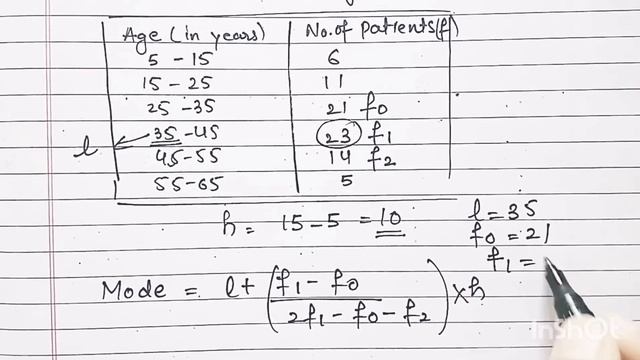 Age (in years) No. of Patients (f)
5 - 15 6
15 - 25 11
25 - 35 21 f0
l 35 - 45 23 f1
45 - 55 14 f2
55 - 65 5
h = 15 - 5 = 10 l = 35
f0 = 21
f1 =
Mode = l + (f1 - f0 / 2f1 - f0 - f2) × h
InShot